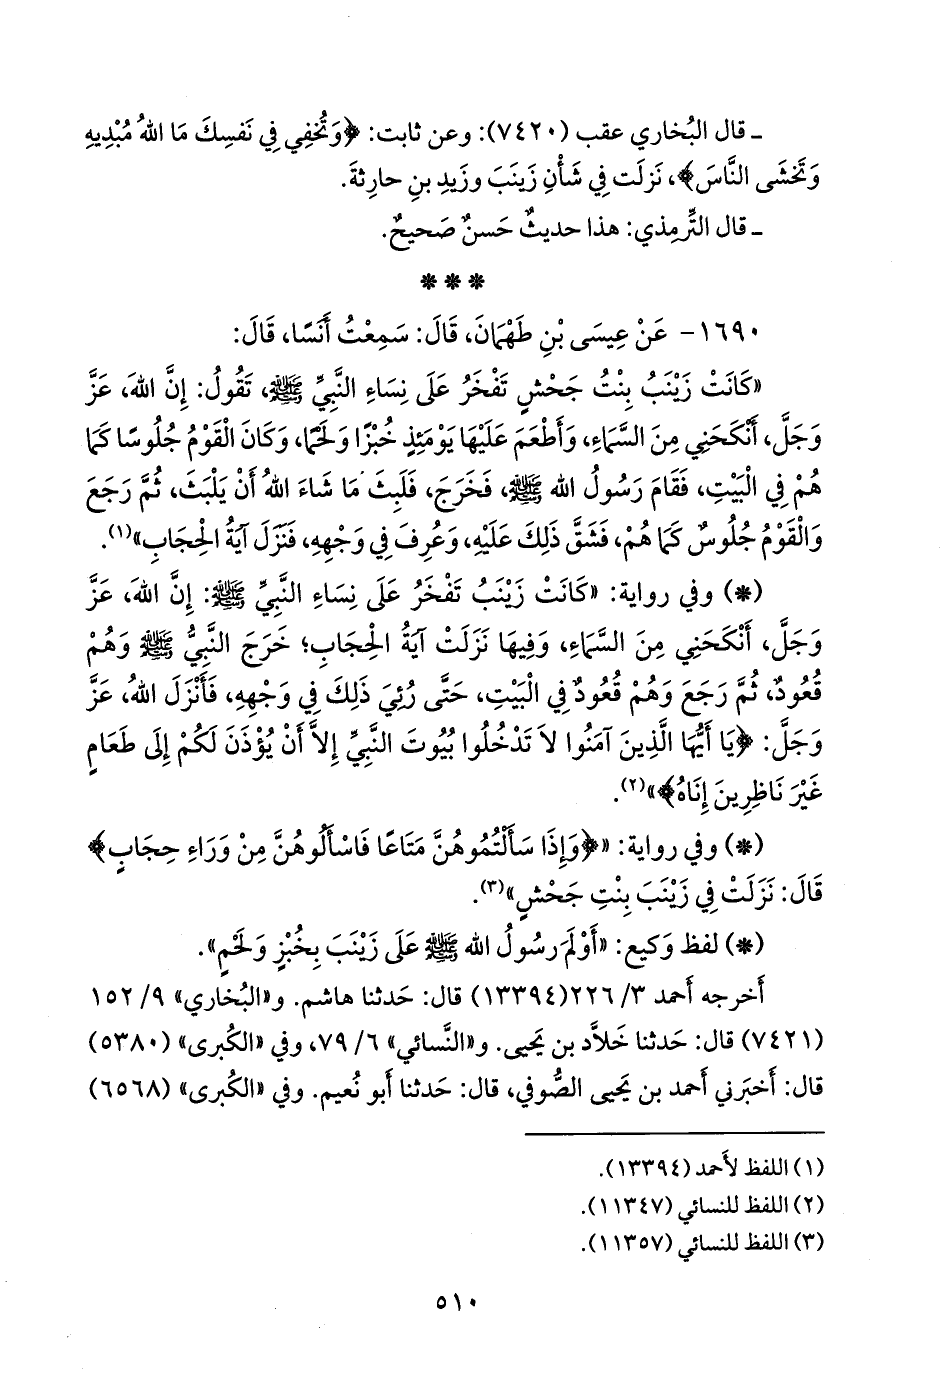 ـ قال البُخاري عقب (٧٤٢٠): وعن ثابت: ﴿وَتُخفِي فِي نَفسِكَ مَا اللهُ مُبْدِيهِ
وَتَخشَى النَّاسَ﴾، نَزلَت فِي شَأْنِ زَينَبَ وزَيدِ بنِ حارِثةَ.
ـ قال التِّرمِذي: هذا حديثٌ حَسنٌ صَحيحٌ.
* * *
١٦٩٠- عَنْ عِيسَى بْنِ طَهْمَانَ، قَالَ: سَمِعْتُ أَنَسًا، قَالَ:
«كَانَتْ زَيْنَبُ بِنْتُ جَحْشٍ تَفْخَرُ عَلَى نِسَاءِ النَّبِيِّ ﷺ، تَقُولُ: إِنَّ اللهَ، عَزَّ
وَجَلَّ، أَنْكَحَنِي مِنَ السَّمَاءِ، وَأَطْعَمَ عَلَيْهَا يَوْمَئِذٍ خُبْزًا وَلَحْمًا، وَكَانَ الْقَوْمُ جُلُوسًا كَمَا
هُمْ فِي الْبَيْتِ، فَقَامَ رَسُولُ الله ﷺ، فَخَرَجَ، فَلَبِثَ مَا شَاءَ اللهُ أَنْ يَلْبَثَ، ثُمَّ رَجَعَ
وَالْقَوْمُ جُلُوسٌ كَمَا هُمْ، فَشَقَّ ذَلِكَ عَلَيْهِ، وَعُرِفَ فِي وَجْهِهِ، فَنَزَلَ آيَةُ الْحِجَابِ»(١).
(*) وفي رواية: «كَانَتْ زَيْنَبُ تَفْخَرُ عَلَى نِسَاءِ النَّبِيِّ ﷺ: إِنَّ اللهَ، عَزَّ
وَجَلَّ، أَنْكَحَنِي مِنَ السَّمَاءِ، وَفِيهَا نَزَلَتْ آيَةُ الْحِجَابِ؛ خَرَجَ النَّبِيُّ ﷺ وَهُمْ
قُعُودٌ، ثُمَّ رَجَعَ وَهُمْ قُعُودٌ فِي الْبَيْتِ، حَتَّى رُئِيَ ذَلِكَ فِي وَجْهِهِ، فَأَنْزَلَ اللهُ، عَزَّ
وَجَلَّ: ﴿يَا أَيُّهَا الَّذِينَ آمَنُوا لاَ تَدْخُلُوا بُيُوتَ النَّبِيِّ إِلاَّ أَنْ يُؤْذَنَ لَكُمْ إِلَى طَعَامٍ
غَيْرَ نَاظِرِينَ إِنَاهُ﴾»(٢).
(*) وفي رواية: «﴿وَإِذَا سَأَلْتُمُوهُنَّ مَتَاعًا فَاسْأَلُوهُنَّ مِنْ وَرَاءِ حِجَابٍ﴾
قَالَ: نَزَلَتْ فِي زَيْنَبَ بِنْتِ جَحْشٍ»(٣).
(*) لفظ وَكيع: «أَوْلَمَ رَسُولُ الله ﷺ عَلَى زَيْنَبَ بِخُبْزٍ وَلَحْمٍ».
أَخرجه أَحمد ٣/ ٢٢٦(١٣٣٩٤) قال: حَدثنا هاشم. و«البُخاري» ٩/ ١٥٢
(٧٤٢١) قال: حَدثنا خَلاَّد بن يَحيى. و«النَّسائي» ٦/ ٧٩، وفي «الكُبرى» (٥٣٨٠)
قال: أَخبَرني أَحمد بن يَحيى الصُّوفي، قال: حَدثنا أَبو نُعيم. وفي «الكُبرى» (٦٥٦٨)
(١) اللفظ لأَحمد (١٣٣٩٤).
(٢) اللفظ للنسائي (١١٣٤٧).
(٣) اللفظ للنسائي (١١٣٥٧).
٥١٠